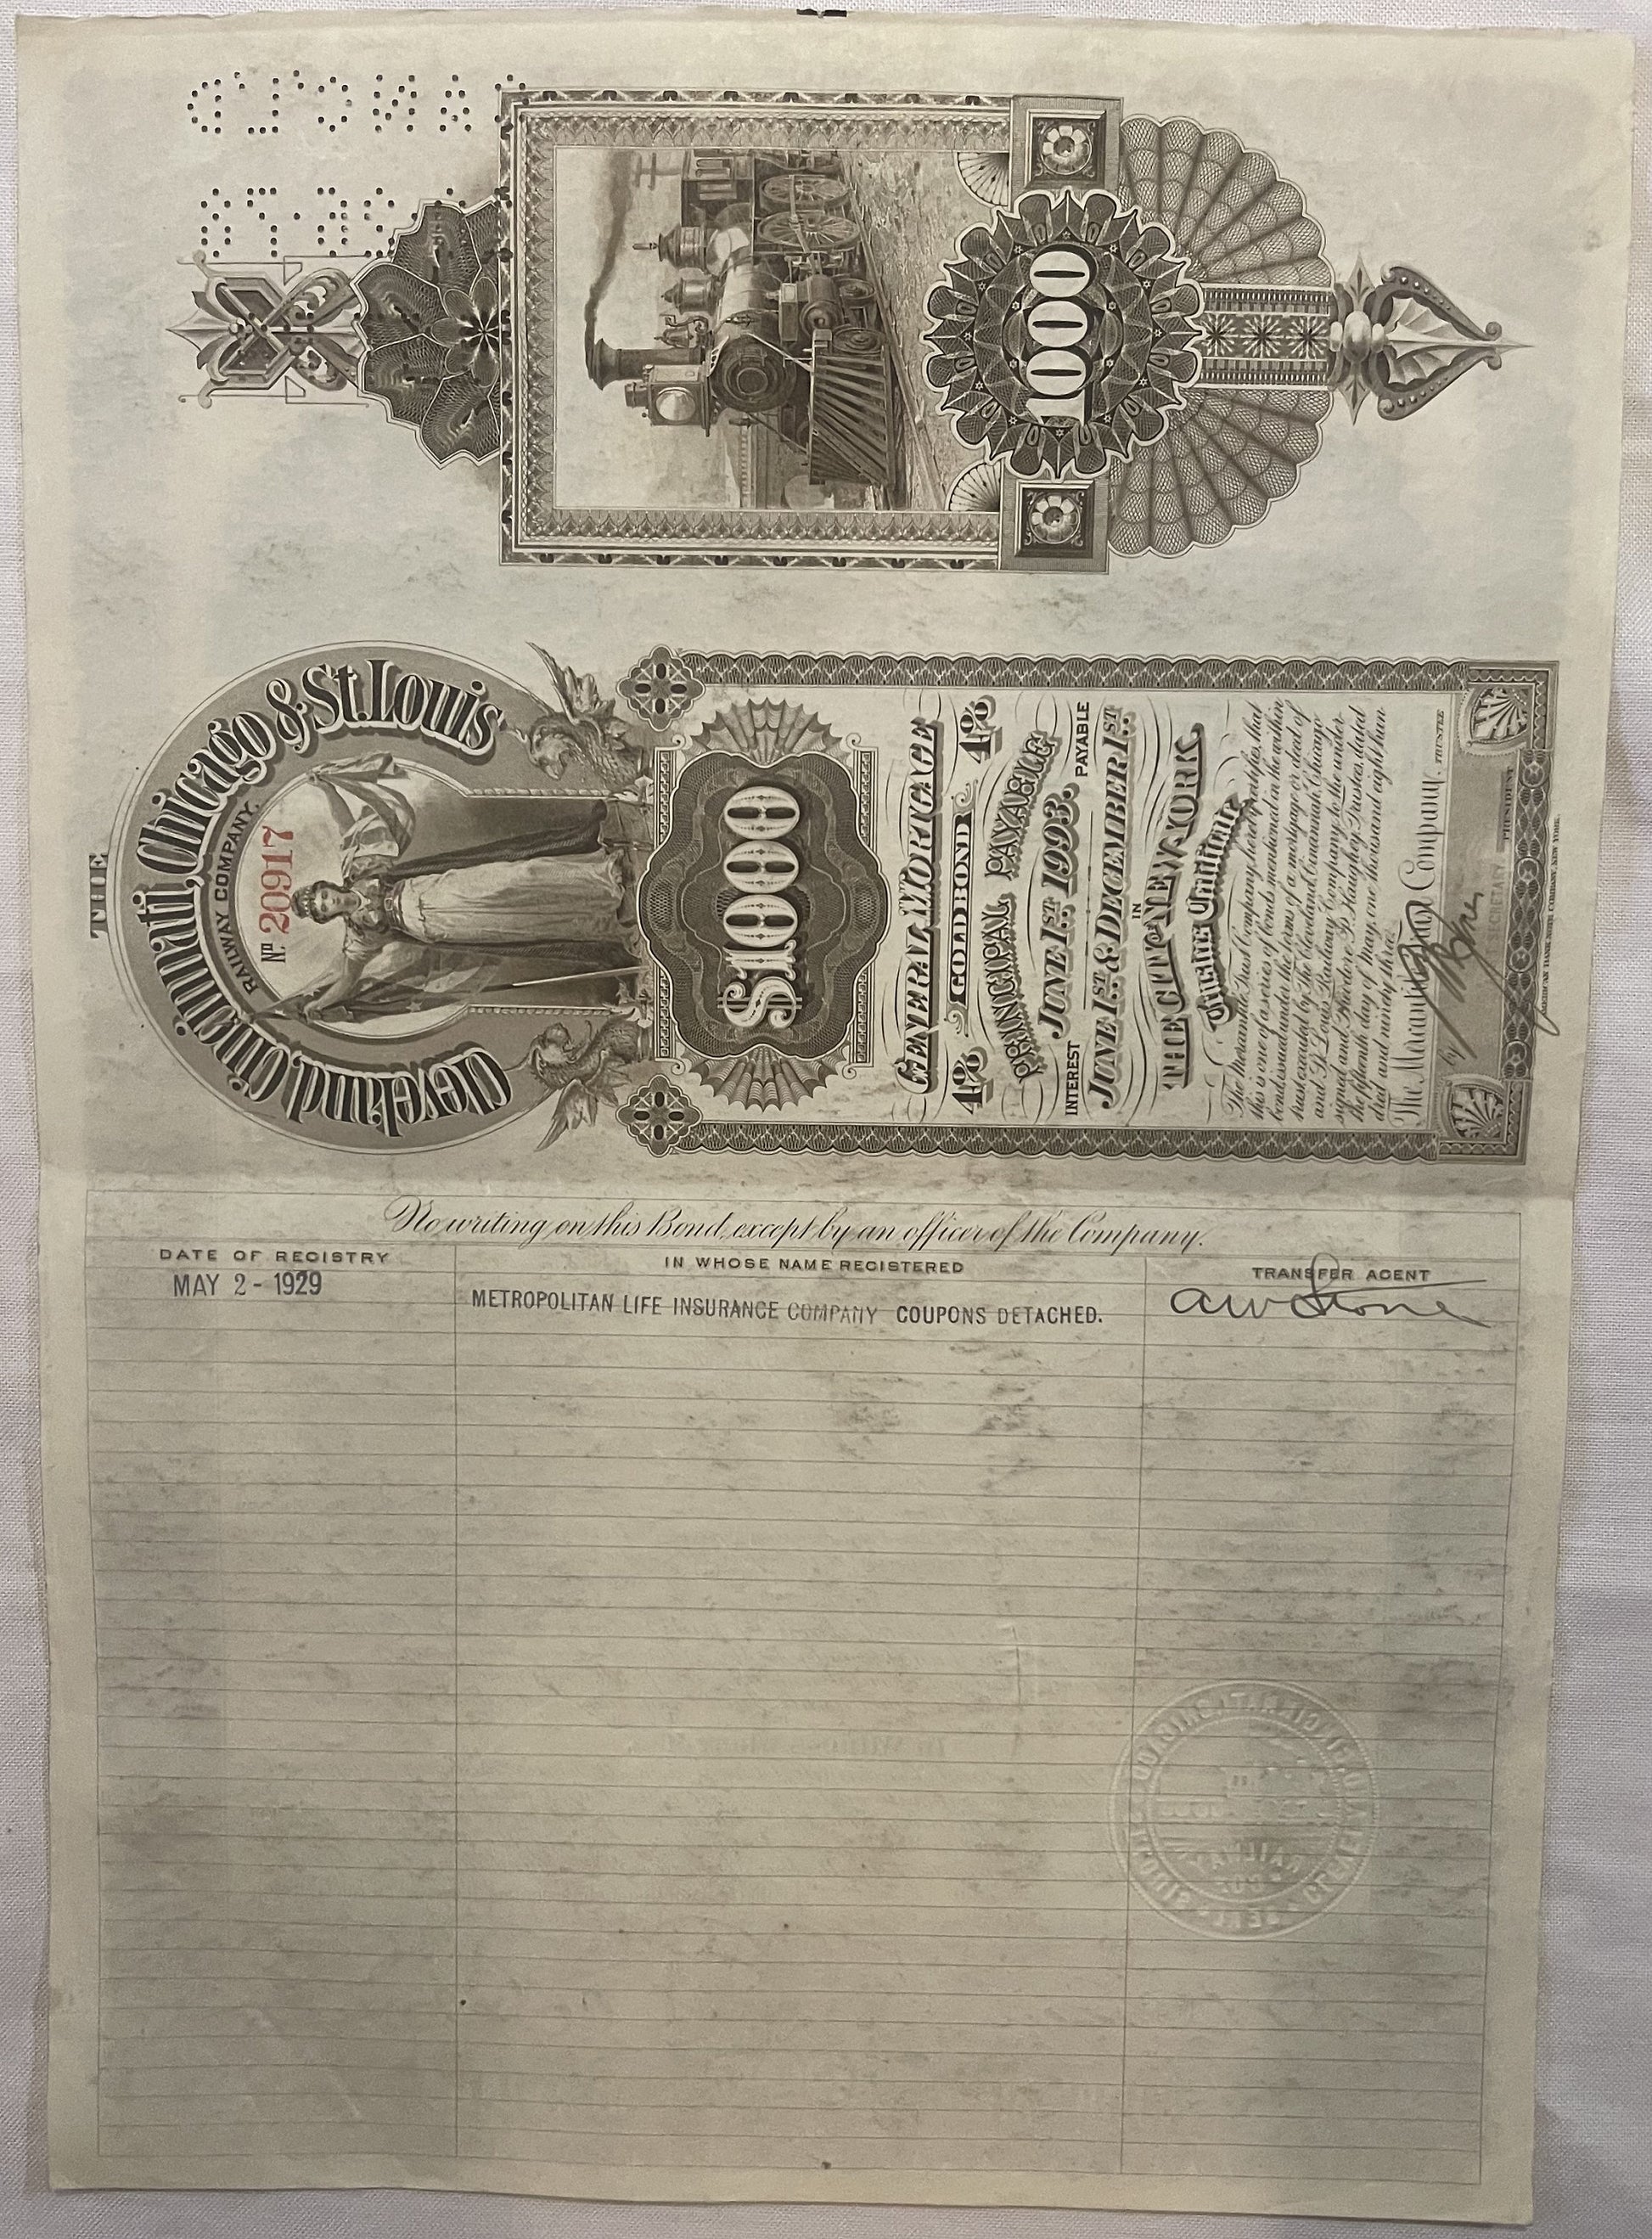 THE
Cleveland, Cincinnati, Chicago & St. Louis
RAILWAY COMPANY.
No. 20917
$1000
GENERAL MORTGAGE
4% GOLD BOND 4%
PRINCIPAL PAYABLE
JUNE 1ST 1993.
INTEREST PAYABLE
JUNE 1ST & DECEMBER 1ST
IN
THE CITY OF NEW YORK.
Trustee's Certificate
The Mercantile Trust Company, hereby certifies, that
this is one of a series of bonds mentioned in the within
bond issued under the terms of a mortgage or deed of
trust executed by The Cleveland, Cincinnati, Chicago
and St. Louis Railway Company, to the under-
signed and Theodore P. Haughey, Trustees, dated
the fifteenth day of May, one thousand eight hun-
dred and ninety three.
The Mercantile Trust Company. TRUSTEE
by
SECRETARY PRESIDENT
AMERICAN BANK NOTE COMPANY, NEW YORK.
1000
No writing on this Bond, except by an officer of the Company.
DATE OF REGISTRY IN WHOSE NAME REGISTERED TRANSFER AGENT
MAY 2 - 1929 METROPOLITAN LIFE INSURANCE COMPANY COUPONS DETACHED. A W Stone